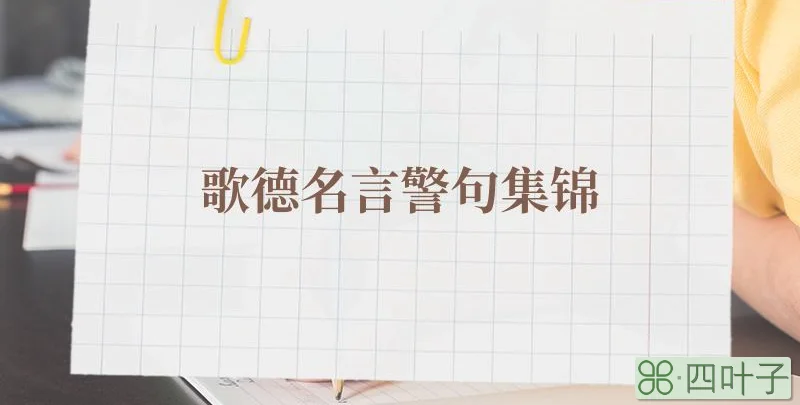 歌德名言警句集锦
四叶子